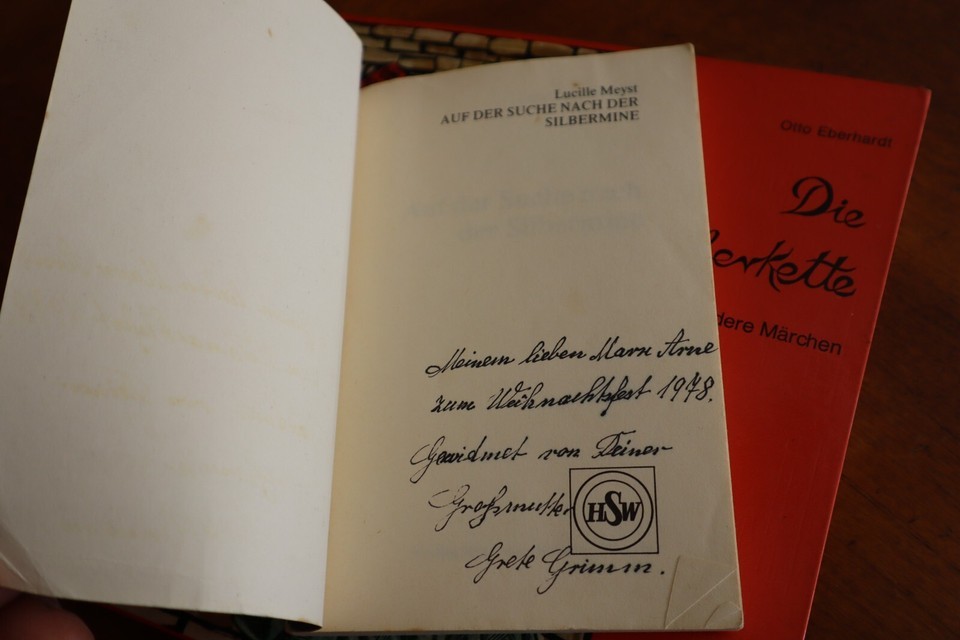 Lucille Meyst
AUF DER SUCHE NACH DER
SILBERMINE
Meinem lieben Marx Arne
zum Weihnachtsfest 1978.
Gewidmet von Deiner
Großmutter
HSW
Grete Grimm.
Otto Eberhardt
Die
erkette
dere Märchen